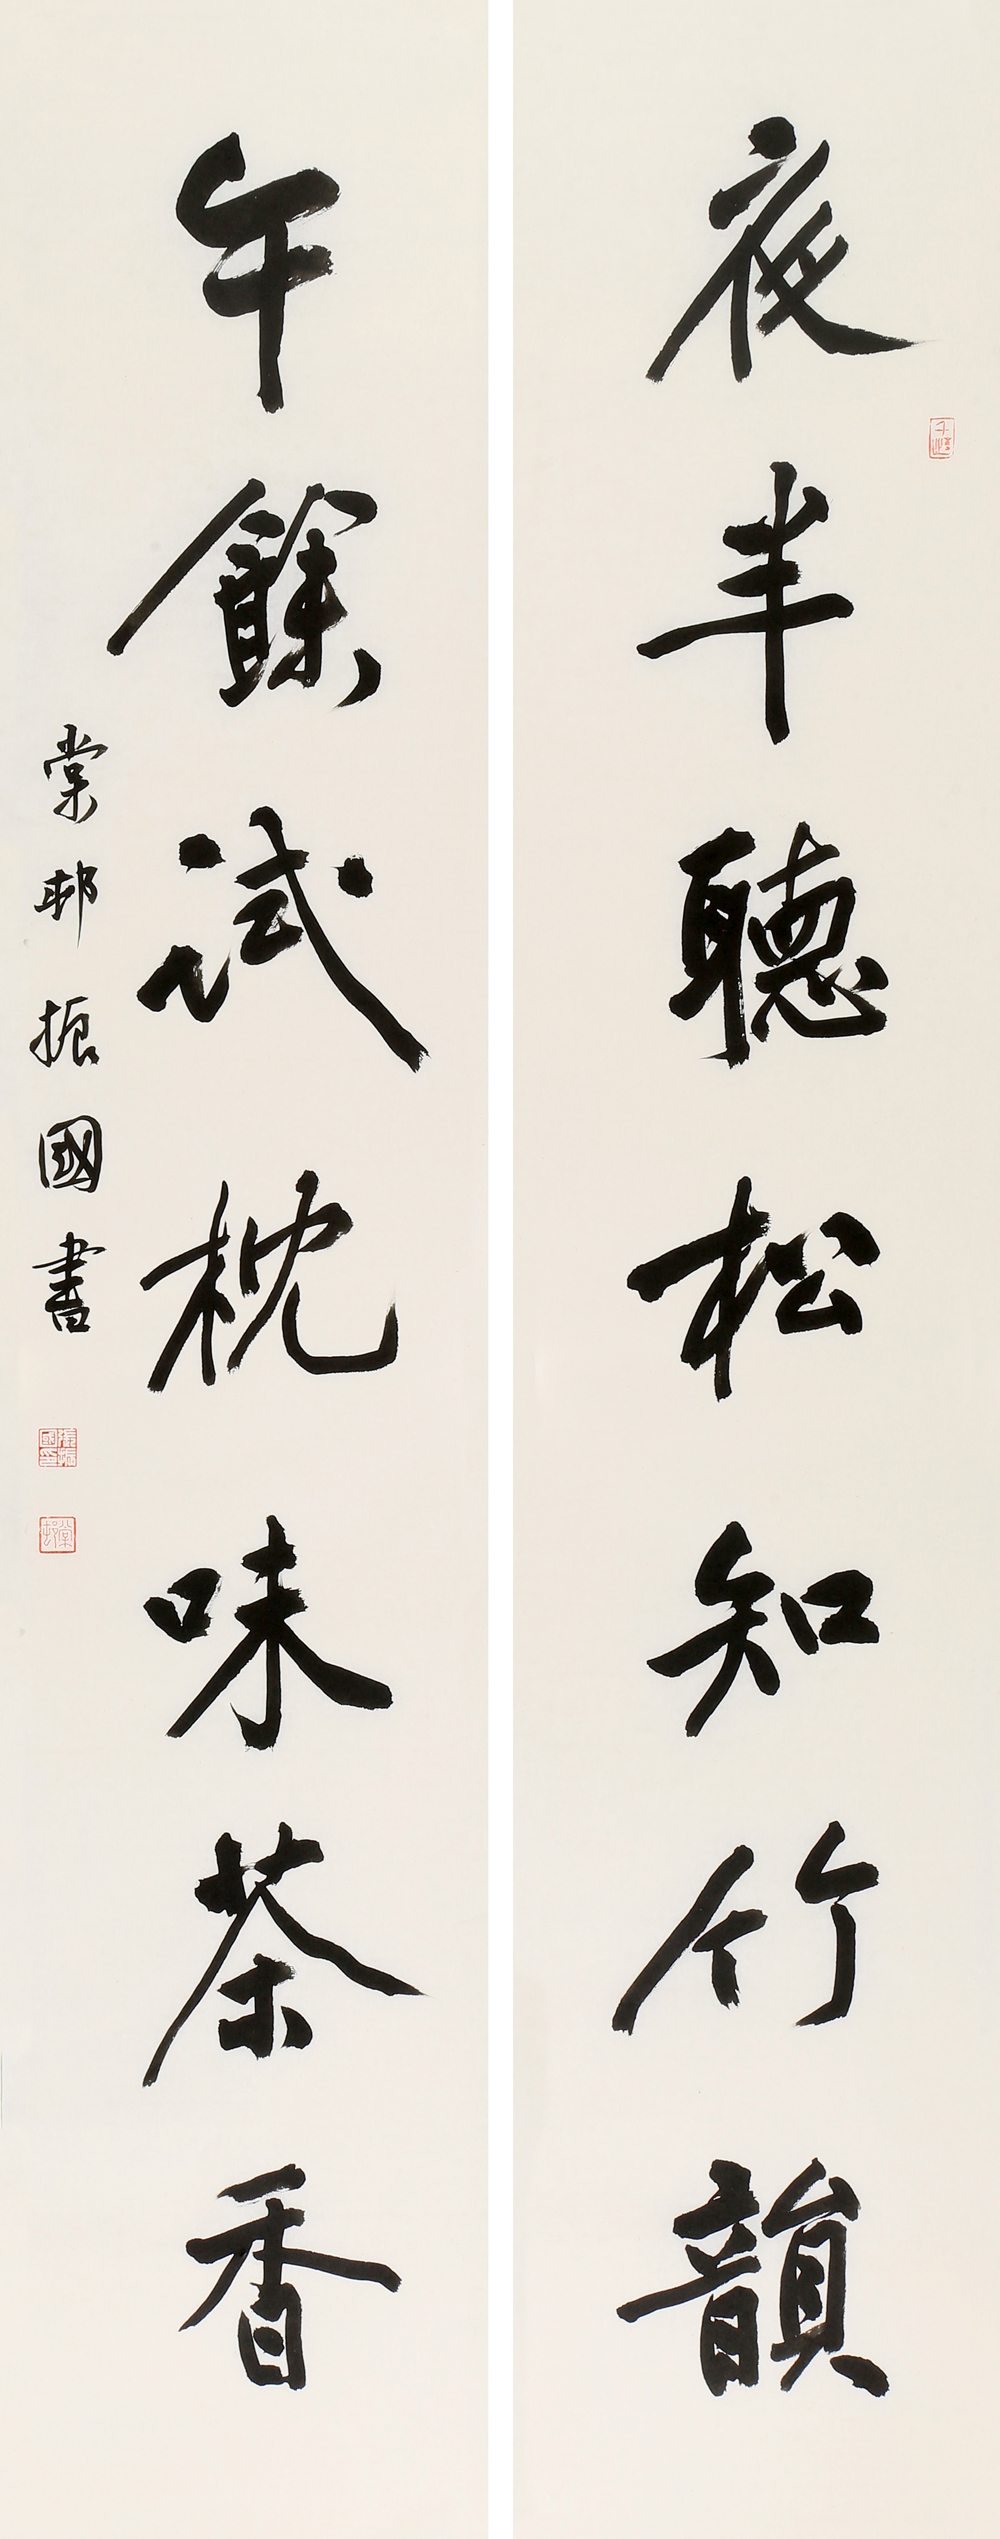 夜半聽松知竹韻
午餘試枕味茶香
棠邨振國書